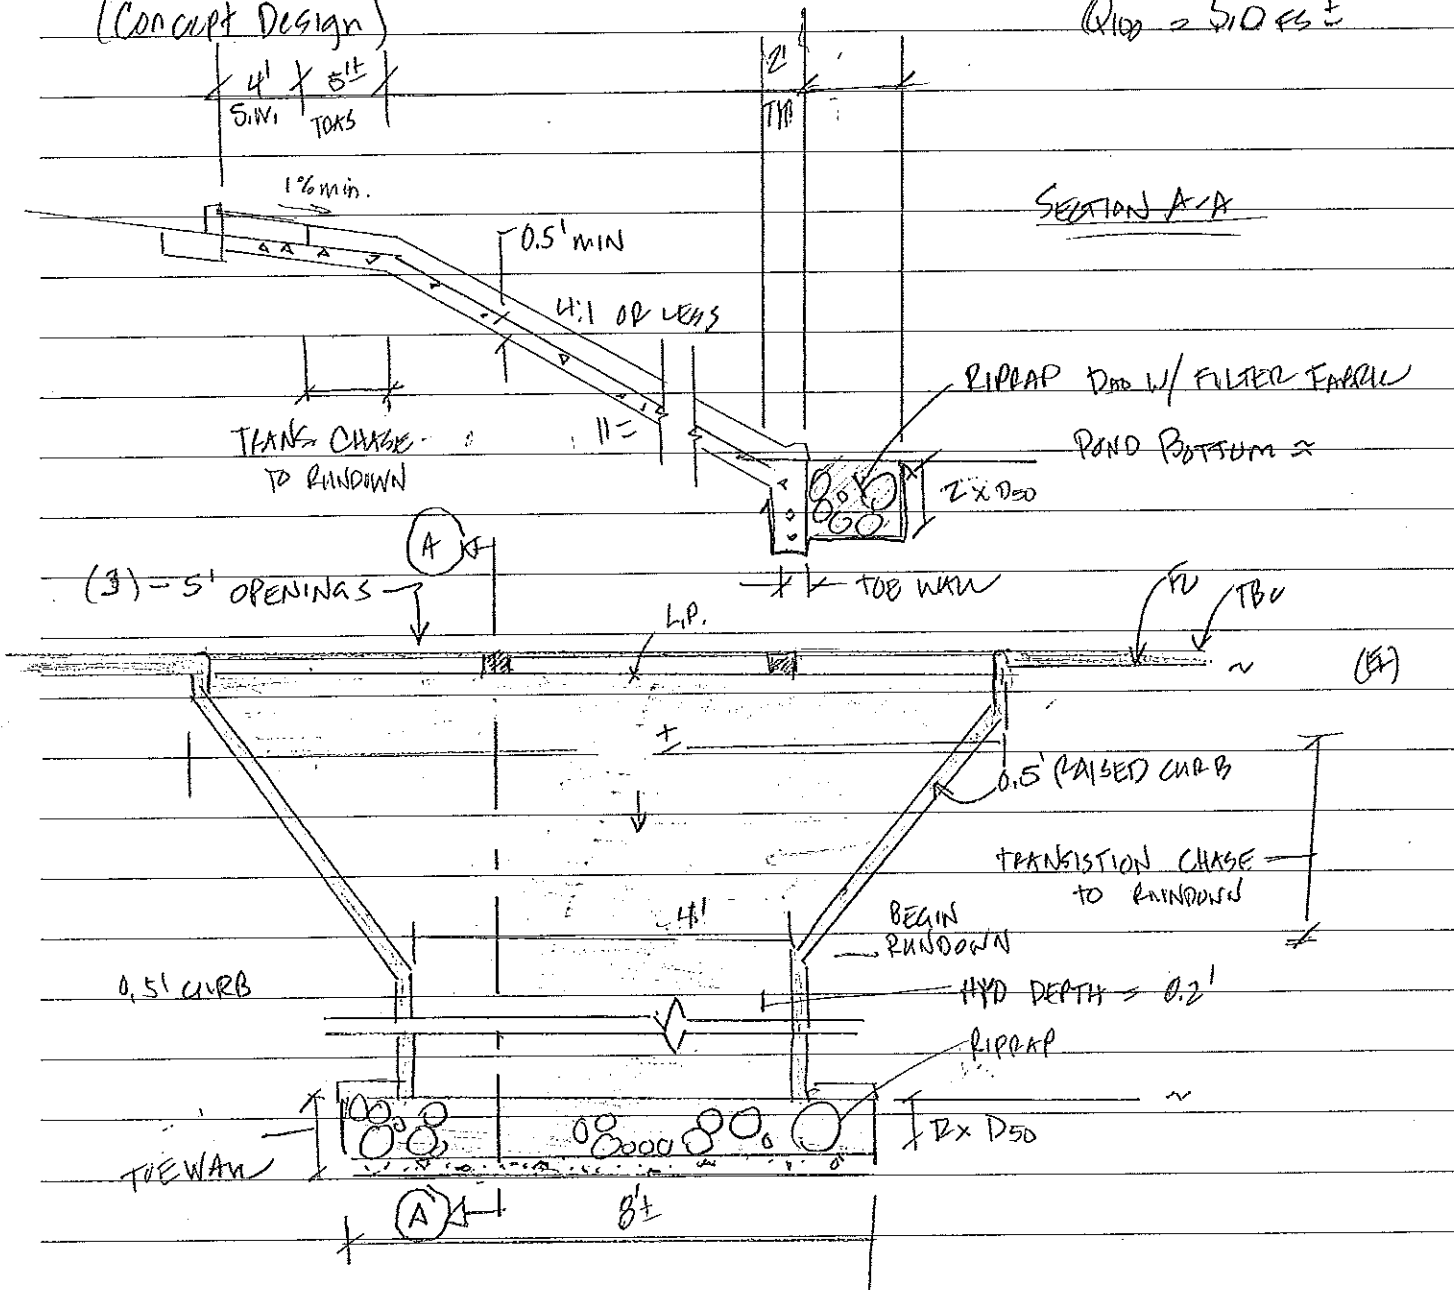 (Concept Design)
Q100 = 5.0 cfs ±
4'
5'±
S.W.
TRANS
2'
TYP
1% min.
SECTION A-A
0.5' MIN
4:1 OR LESS
RIPRAP D50 W/ FILTER FABRIC
TRANS CHASE
TO RUNDOWN
11 =
POND BOTTOM ≈
2 x D50
A
(3) - 5' OPENINGS
TOE WALL
L.P.
FL
TBC
~
±
0.5' RAISED CURB
TRANSISTION CHASE
TO RUNDOWN
4'
BEGIN
RUNDOWN
0.5' CURB
HYD DEPTH = 0.2'
RIPRAP
~
2x D50
TOE WALL
A'
8'±